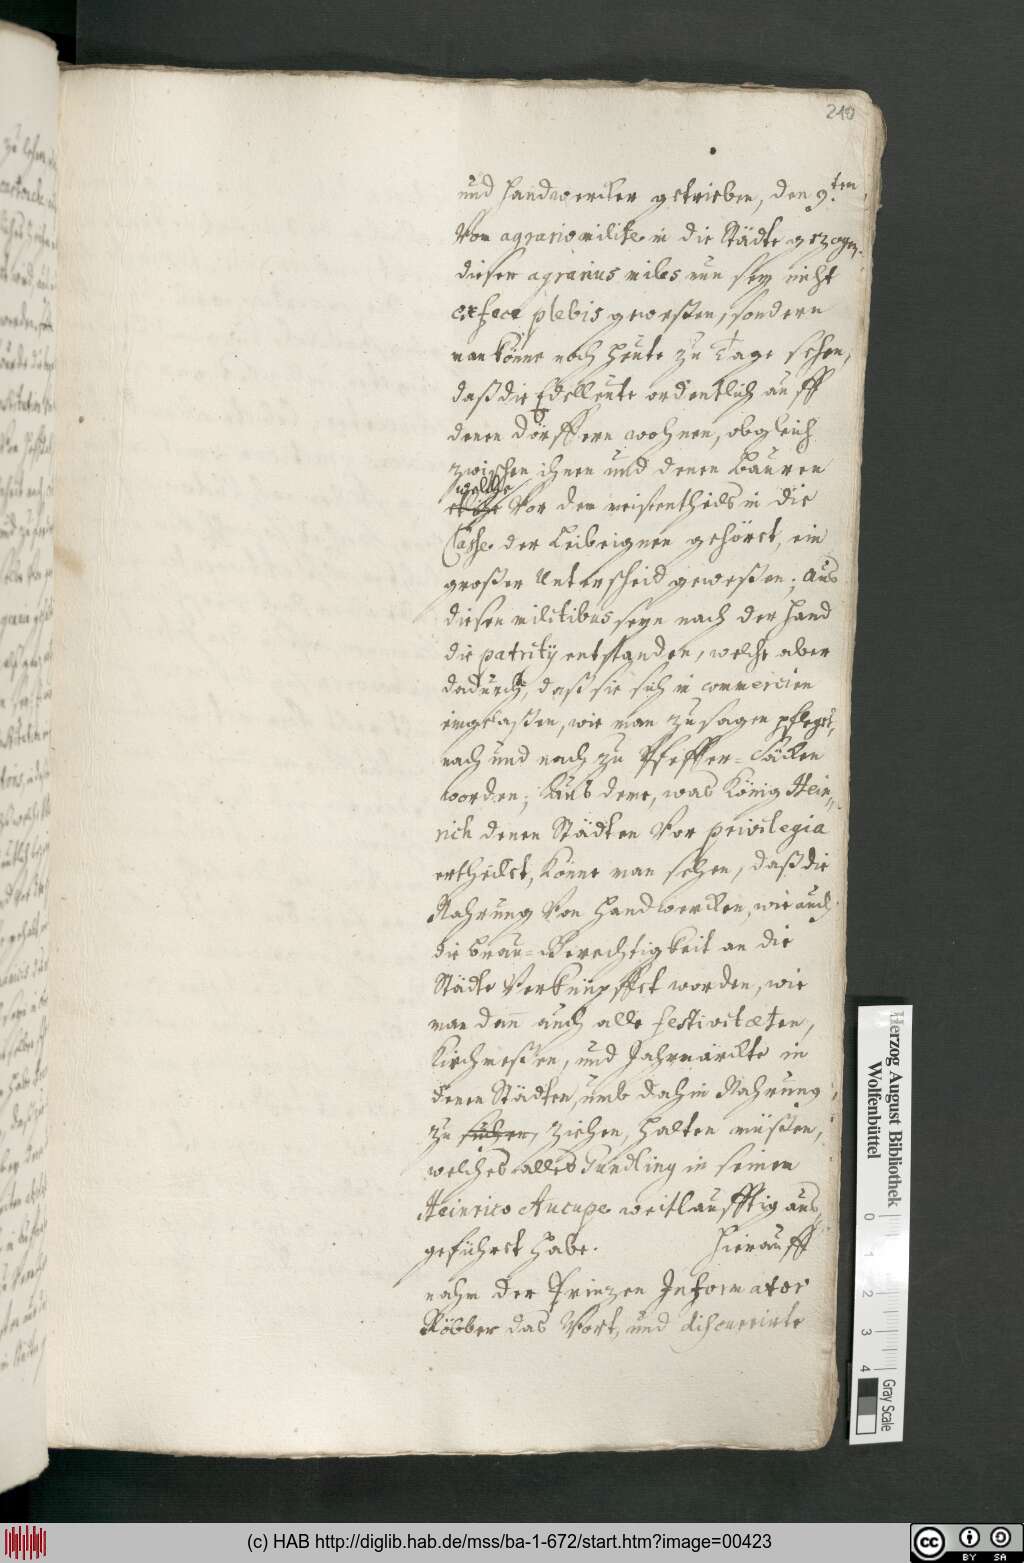 240
und Handwercker getrieben, den 9.ten
Von agrario milite in die Städte gezogen,
dieser agrarius miles nun sey nicht
ex fece plebis geweßen, sondern
man könne noch heute zu Tage sehen,
daß die Edelleute ordentlich auff
denen Dörffern wohnen, obgleich
zwischen ihnen und denen Bauren
welche
Vor dem meistentheils in die
Classe der Leibeignen gehöret, ein
großer Unterscheid geweßen; aus
diesen militibus seyn nach der Hand
die patritij entstanden, welche aber
dadurch, daß sie sich in commercien
eingelaßen, wie man zu sagen pfleget,
nach und nach zu Pfeffer-Säcken
worden; Aus deme, was König Hein,,
rich denen Städten Vor privilegia
ertheilet, könne man sehen, daß die
Nahrung Von Handwercken, wie auch
die brau-Gerechtigkeit an die
Städte Verknüpffet worden, wie
man dan̄ auch alle festivitæten,
Kirchmeßen, und Jahrmärckte in
denen Städten, umb dahin Nahrung
zu suchen, ziehen, halten müßen,
welches alles Gundling in seinem
Heinrico Aucupe weitläufftig aus,,
geführet habe. Hierauff
nahm der Prinzen Informator
Köbber das Wort, und discurrirte
Herzog August Bibliothek
Wolfenbüttel
0 1 2 3 4
Gray Scale
(c) HAB http://diglib.hab.de/mss/ba-1-672/start.htm?image=00423
cc BY SA